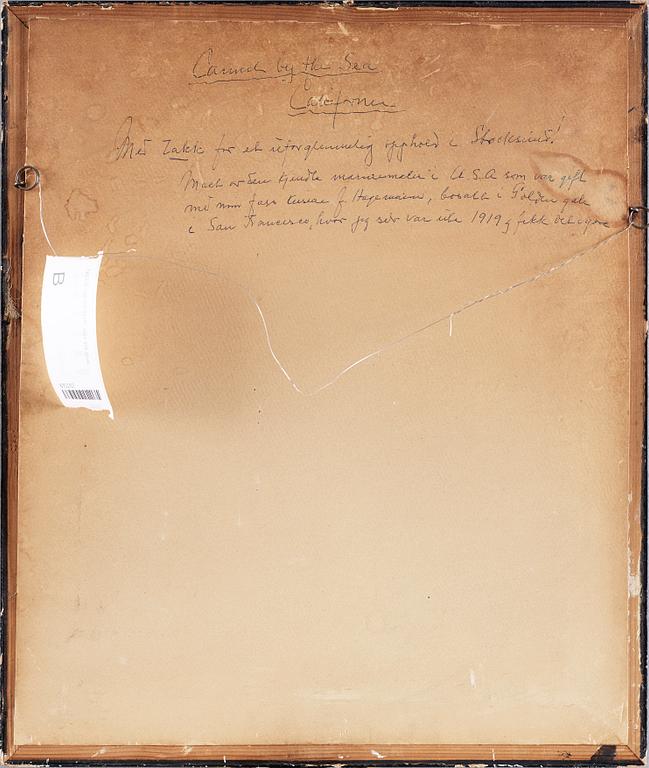 Carmel by the Sea
California
Med Takk for et uforglemmelig opphold i Stocksund!
Malt av den kjendte marinemaler i U.S.A som var gift
med min fars f. Hagemann, bosatt i Golden gate
i San Francisco, hvor jeg selv var ute 1919 og fikk det
B